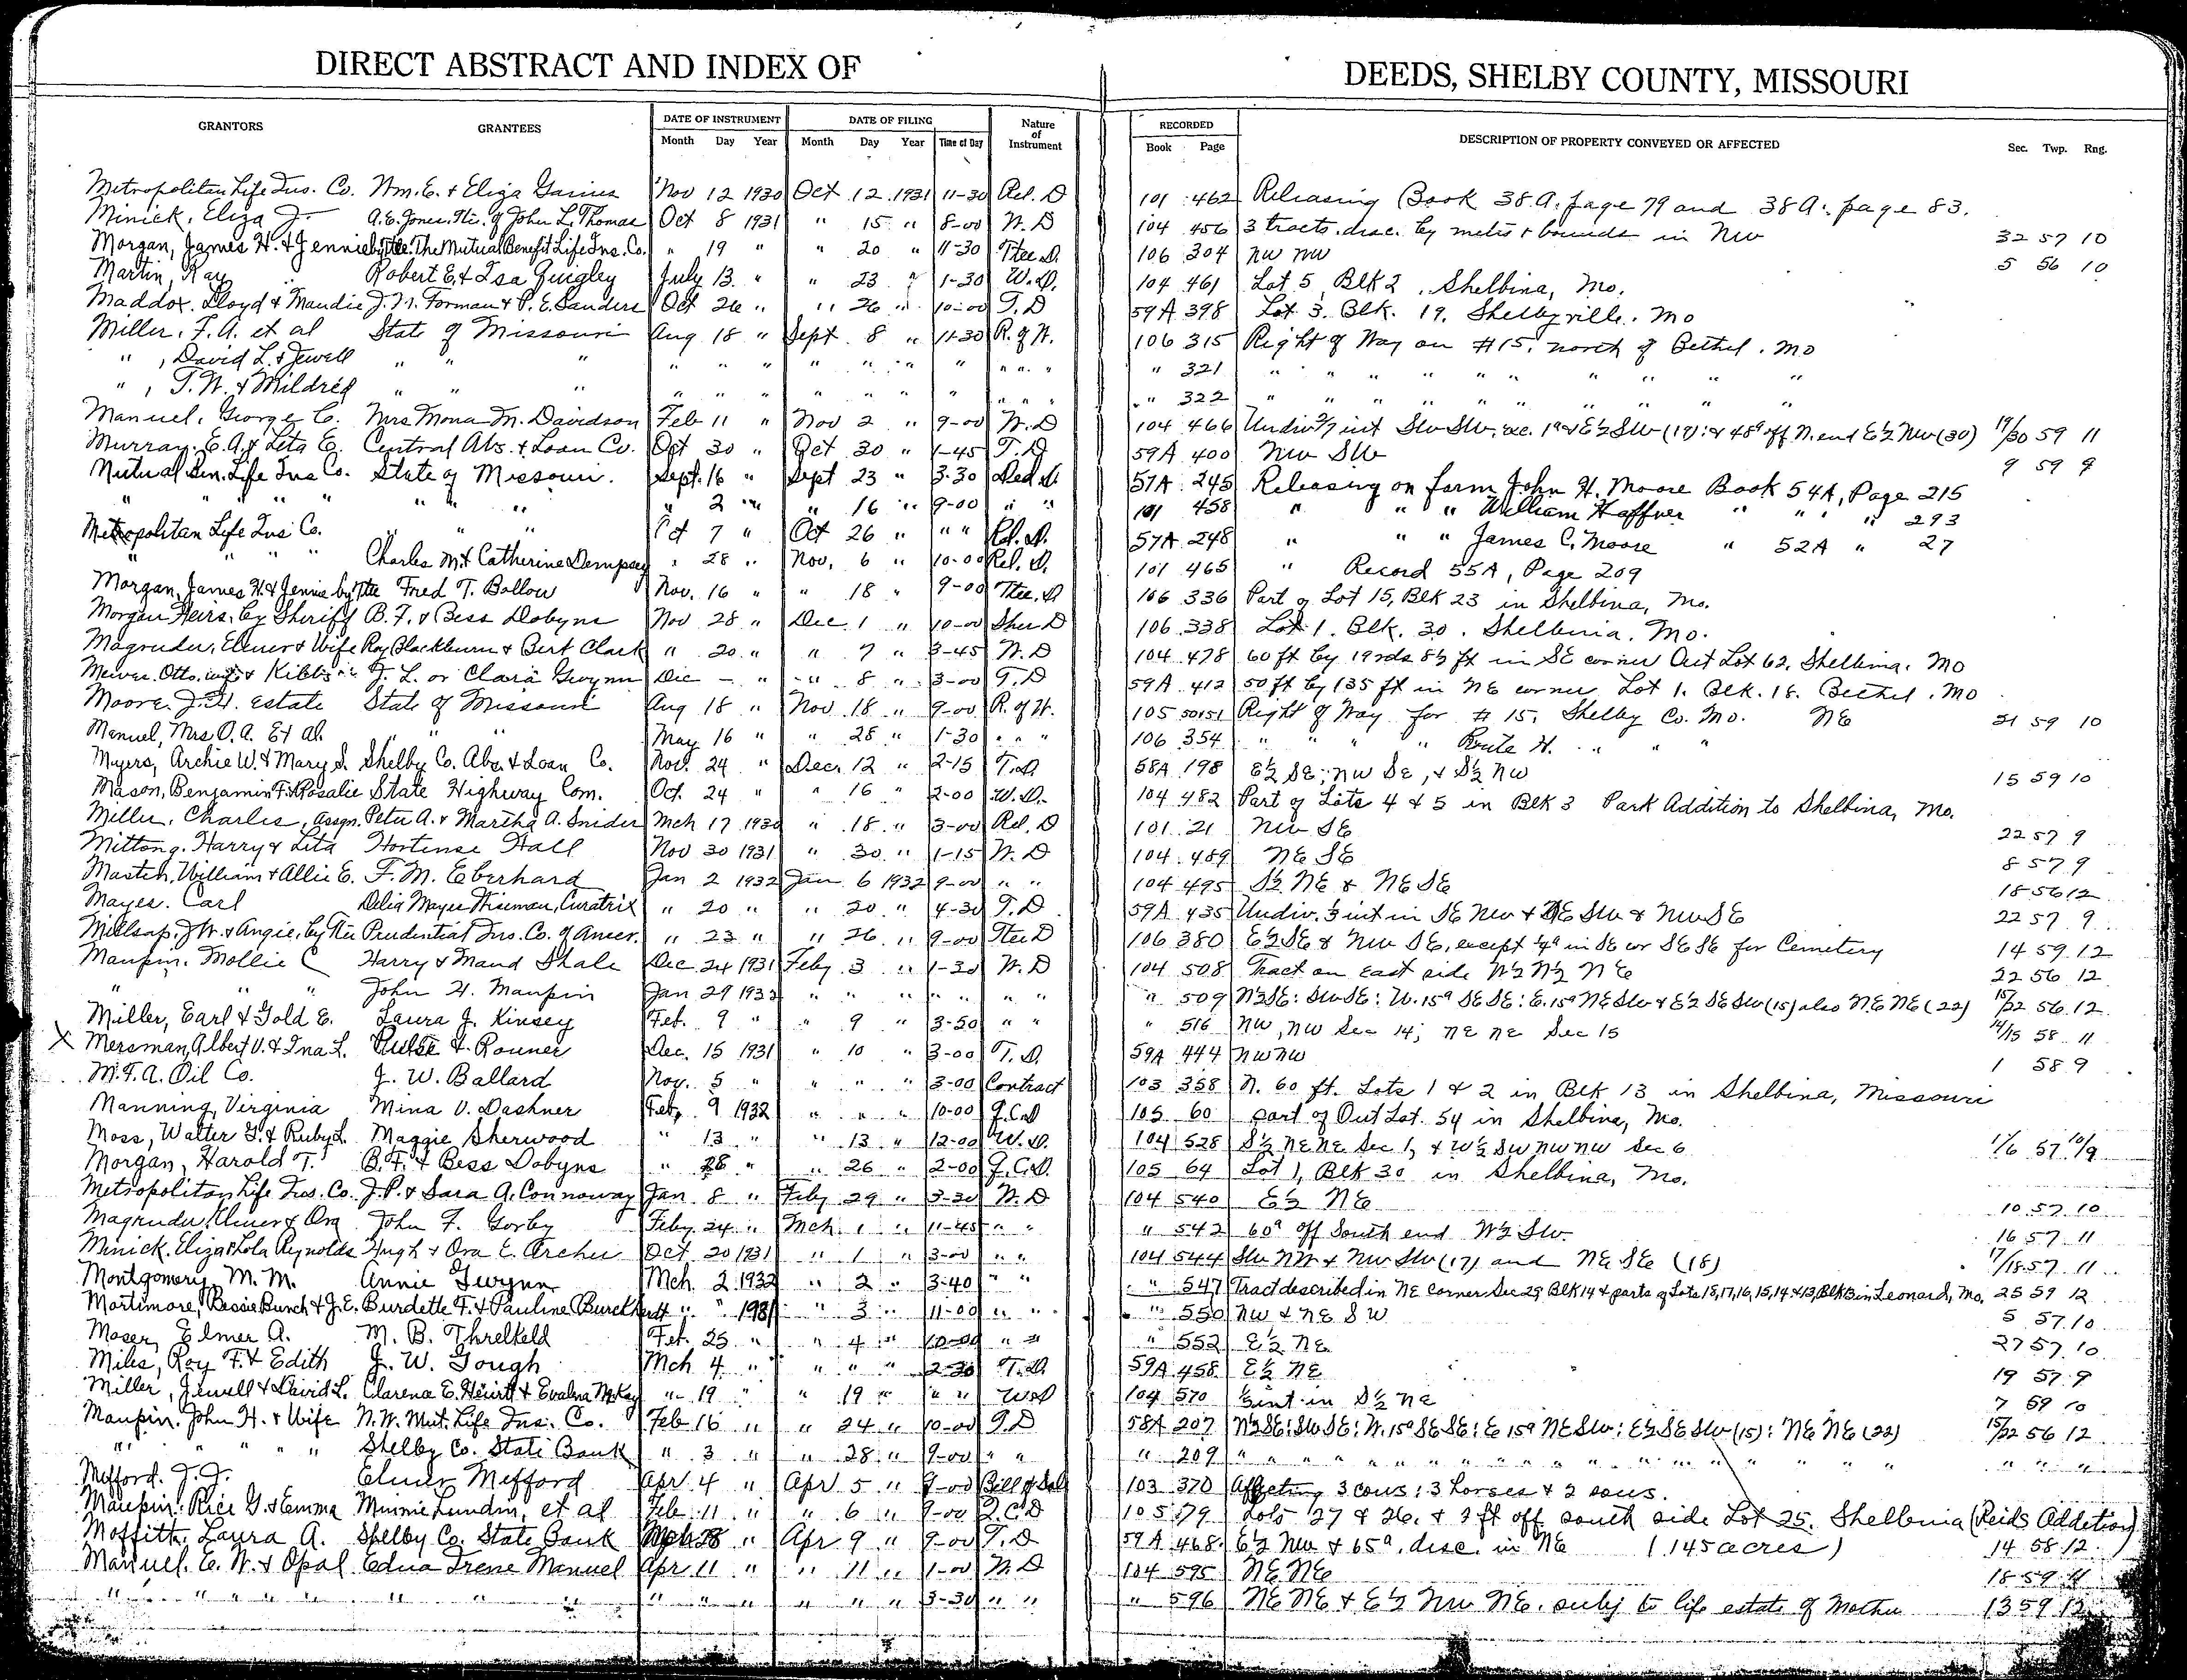 DIRECT ABSTRACT AND INDEX OF DEEDS, SHELBY COUNTY, MISSOURI
GRANTORS GRANTEES DATE OF INSTRUMENT DATE OF FILING Nature of Instrument RECORDED DESCRIPTION OF PROPERTY CONVEYED OR AFFECTED Sec. Twp. Rng.
Month Day Year Month Day Year Time of Day Book Page
Metropolitan Life Ins. Co. Wm. E. & Eliza Gaines Nov 12 1930 Oct 12 1931 11-30 Rel. D 101 462 Releasing Book 38 A. page 79 and 38 A. page 83.
Minick, Eliza J. A. E. Jones, Tte. of John L. Thomas Oct 8 1931 " 15 " 8-00 W. D 104 456 3 tracts desc. by metes & bounds in NW 32 57 10
Morgan, James H. & Jennie by Tte. The Mutual Benefit Life Ins. Co. " 19 " " 20 " 11-30 Ttee D. 106 304 NW NW 5 56 10
Martin, Ray Robert E. & Isa Quigley July 13 " " 23 " 1-30 W. D. 104 461 Lot 5, Blk 2, Shelbina, Mo.
Maddox, Lloyd & Maudie J. N. Forman & P. E. Sanders Oct 26 " " 26 " 10-00 T. D 59A 398 Lot 3. Blk. 19. Shelbyville. Mo
Miller, F. A. et al State of Missouri Aug 18 " Sept. 8 " 11-30 R. of W. 106 315 Right of Way on #15, north of Bethel. Mo
" , David L. & Jewell " " " " " " " " " " " " " " 321 " " " " " " " " " "
" , T. W. & Mildred " " " " " " " " " " " " " " 322 " " " " " " " " " "
Manuel, George C. Mrs Mona M. Davidson Feb 11 " Nov 2 " 9-00 W. D 104 466 Undiv 2/7 int SW SW, exc. 1a & E½ SW (19): & 48a off N. end E½ NW (30) 19/30 59 11
Murray, E. A. & Leta E. Central Abs. & Loan Co. Oct 30 " Oct 30 " 1-45 T. D 59A 400 NW SW 9 59 9
Mutual Ben. Life Ins Co. State of Missouri. Sept. 16 " Sept 23 " 3-30 Ded. D. 57A 245 Releasing on farm John H. Moore Book 54A, Page 215
" " " " " " " " " 2 " " 16 " 9-00 " " 101 458 " " " William Haffner " " " 293
Metropolitan Life Ins Co. " " " Oct 7 " Oct 26 " " " Rel. D. 57A 248 " " " James C. Moore " 52A " 27
" " " " Charles M. & Catherine Dempsey " 28 " Nov. 6 " 10-00 Rel. D. 101 465 " Record 55A, Page 209
Morgan, James H. & Jennie by Tte Fred T. Bollow Nov. 16 " " 18 " 9-00 Ttee. D 106 336 Part of Lot 15, Blk 23 in Shelbina, Mo.
Morgan Heirs, by Sheriff B. F. & Bess Dobyns Nov 28 " Dec. 1 " 10-00 Sher D 106 338 Lot 1. Blk. 30. Shelbina. Mo.
Magruder, Elmer & Wife Roy Blackburn & Bert Clark " 20 " " 7 " 3-45 W. D 104 478 60 ft by 19 rds 8½ ft in SE corner Out Lot 62, Shelbina. Mo
Otto, & J. L. or Clara Gwynn Dec - " " 8 " 3-00 T. D 59A 412 50 ft by 135 ft in NE corner Lot 1. Blk. 18. Bethel. Mo
Moore, J. H. estate State of Missouri Aug 18 " Nov 18 " 9-00 R. of W. 105 50151 Right of Way for #15, Shelby Co. Mo. NE 21 59 10
Manuel, Mrs O. A. Et Al. " " " May 16 " " 28 " 1-30 " " " 106 354 " " " " Route H. " " "
Myers, Archie W. & Mary S. Shelby Co. Abs. & Loan Co. Nov. 24 " Dec. 12 " 2-15 T. D. 58A 198 E½ SE; NW SE, & S½ NW 15 59 10
Mason, Benjamin F. & Rosalie State Highway Com. Oct. 24 " " 16 " 2-00 W. D. 104 482 Part of Lots 4 & 5 in Blk 3 Park Addition to Shelbina, Mo.
Miller, Charles, Assgn. Peter A. & Martha A. Snider Mch 17 1930 " 18 " 3-00 Rel. D 101 21 NW SE 22 57 9
Mittong, Harry & Leta Hortense Hall Nov 30 1931 " 30 " 1-15 W. D 104 489 NE SE 8 57 9
Masten, William & Allie E. F. M. Eberhard Jan 2 1932 Jan 6 1932 9-00 " " 104 495 S½ NE & NE SE 18 56 12
Mayes. Carl Delia Mayes Wiseman, Curatrix " 20 " " 20 " 4-30 T. D 59A 435 Undiv. ⅓ int in SE NW & NE SW & NW SE 22 57 9
Millsap, J W. & Angie, by Ttee Prudential Ins. Co. of Amer. " 23 " " 26 " 9-00 Ttee D 106 380 E½ SE & NW SE, except ¼a in SE cor SE SE for Cemetery 14 59 12
Maupin, Mollie C Harry & Maud Shale Dec 24 1931 Feby 3 " 1-30 W. D 104 508 Tract on East side W½ N½ NE 22 56 12
" " " John H. Maupin Jan 29 1932 " " " " " " " " 509 N½ SE: SW SE: W. 15a SE SE: E. 15a NE SW & E½ SE SW (15) also NE NE (22) 15/22 56 12
Miller, Earl & Gold E. Laura J. Kinsey Feb. 9 " " 9 " 3-50 " " " 516 NW, NW Sec 14; NE NE Sec 15 14/15 58 11
X Mersman, Albert V. & Ina L. F. Rouner Dec. 15 1931 " 10 " 3-00 T. D. 59A 444 NW NW 1 58 9
M. F. A. Oil Co. J. W. Ballard Nov. 5 " " " " 3-00 Contract 103 358 N. 60 ft. Lots 1 & 2 in Blk 13 in Shelbina, Missouri
Manning, Virginia Mina V. Dashner Feb. 9 1932 " " " 10-00 Q. C. D 105 60 part of Out Lot 54 in Shelbina, Mo.
Moss, Walter G. & Ruby L. Maggie Sherwood " 13 " " 13 " 12-00 W. D. 104 528 S½ NE NE Sec 1, & W½ SW NW NW Sec 6 1/6 57 10/9
Morgan, Harold T. B. F. & Bess Dobyns " 26 " " 26 " 2-00 Q. C. D. 105 64 Lot 1, Blk 30 in Shelbina, Mo.
Metropolitan Life Ins. Co. J. P. & Sara A. Connoway Jan 8 " Feby 29 " 3-30 W. D 104 540 E½ NE 10 57 10
Magruder, Elmer & Ora John F. Gorby Feby 24 " Mch. 1 " 11-45 " " " 542 60a off South end W½ SW. 16 57 11
Minick, Eliza & Lola Reynolds Hugh & Ora E. Archer Oct 20 1931 " 1 " 3-00 " " 104 544 SW NW & NW SW (17) and NE SE (18) 17/18 57 11
Montgomery, M. M. Annie Gwynn Mch. 2 1932 " 2 " 3-40 " " " 547 Tract described in NE corner Sec 29, Blk 14 & parts of Lots 18, 17, 16, 15, 14 & 13, Blk 3 in Leonard, Mo. 25 59 12
Mortimore, Bessie Bunch & J. E. Burdette F. & Pauline Burckhardt " " 1931 " 3 " 11-00 " " " 550 NW & NE SW 5 57 10
Moser, Elmer A. M. B. Threlkeld Feb. 25 " " 4 " 10-00 " " " 552 E½ NE 27 57 10
Miles, Roy F. & Edith J. W. Gough Mch 4 " " " " 2-30 T. D. 59A 458 E½ NE 19 57 9
Miller, Jewell & David L. Clarena E. Hewitt & Evalena McKay " 19 " " 19 " " " W D 104 570 int in S½ NE 7 59 10
Maupin, John H. & Wife N. W. Mut. Life Ins. Co. Feb 16 " " 24 " 10-00 T. D 58A 207 N½ SE: SW SE: W. 15a SE SE: E 15a NE SW: E½ SE SW (15): NE NE (22) 15/22 56 12
" " " " " Shelby Co. State Bank " 3 " " 28 " 9-00 " " " 209 " " " " " " " " " " " " " " " " " "
Mefford. J. J. Elmer Mefford Apr 4 " Apr 5 " 9-00 Bill of Sale 103 370 Affecting 3 cows: 3 horses & 2 sows.
Maupin, Rice G. & Emma Minnie Lundin, et al Feb 11 " " 6 " 9-00 Q. C. D 105 79 Lots 27 & 26, & 2 ft off south side Lot 25. Shelbina (Reids Addition)
Moffitt, Laura A. Shelby Co. State Bank Mch 28 " Apr 9 " 9-00 T. D 59A 468 E½ NW & 65a. desc. in NE (145 acres) 14 58 12
Manuel. E. W. & Opal Edna Irene Manuel Apr 11 " " 11 " 1-00 W. D 104 595 NE NE 18 59 11
" " " " " " " " " " " " " " 3-30 " " " 596 NE NE & E½ NW NE. subj to life estate of Mother 13 59 12